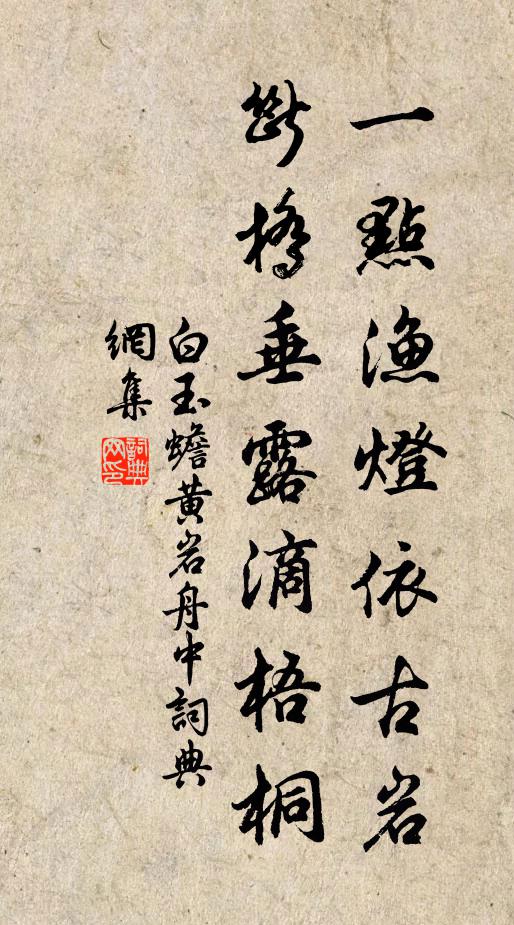 一點漁燈依古岩
斷橋垂露滴梧桐
白玉蟾黃岩舟中詞典
網集
詞典網印